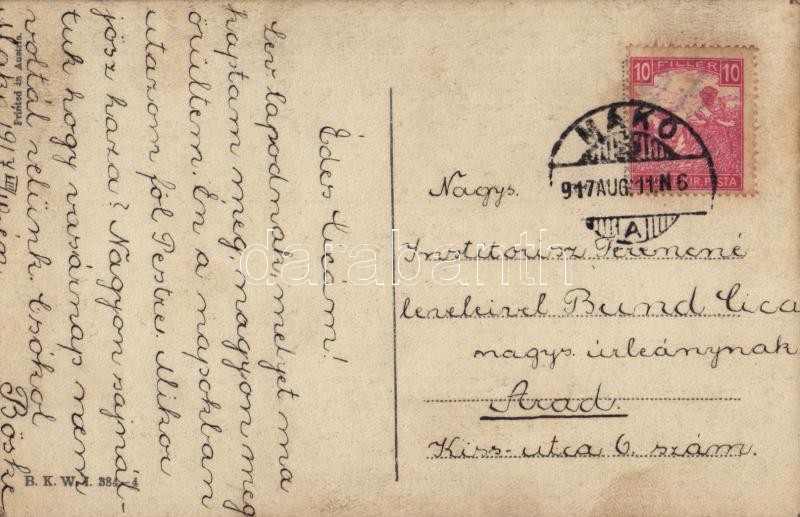 Édes Cicám!
Lev. lapodnak, melyet ma
kaptam meg, nagyon meg
örültem. Én a napokban
utazom föl Pestre. Mikor
jösz haza? Nagyon sajnál-
tuk hogy vasárnap nem
voltál velünk. Csókol
Böske
Makó 917 VIII/10-én.
Printed in Austria.
B. K. W. I. 384-4
10 FILLER 10
MAKÓ
917 AUG. 11. N 6
A
Nagys.
Institorisz Ferencné
leveleivel Bund Cica
nagys. úrleánynak
Arad.
Kiss-utca 6. szám.
darabanth